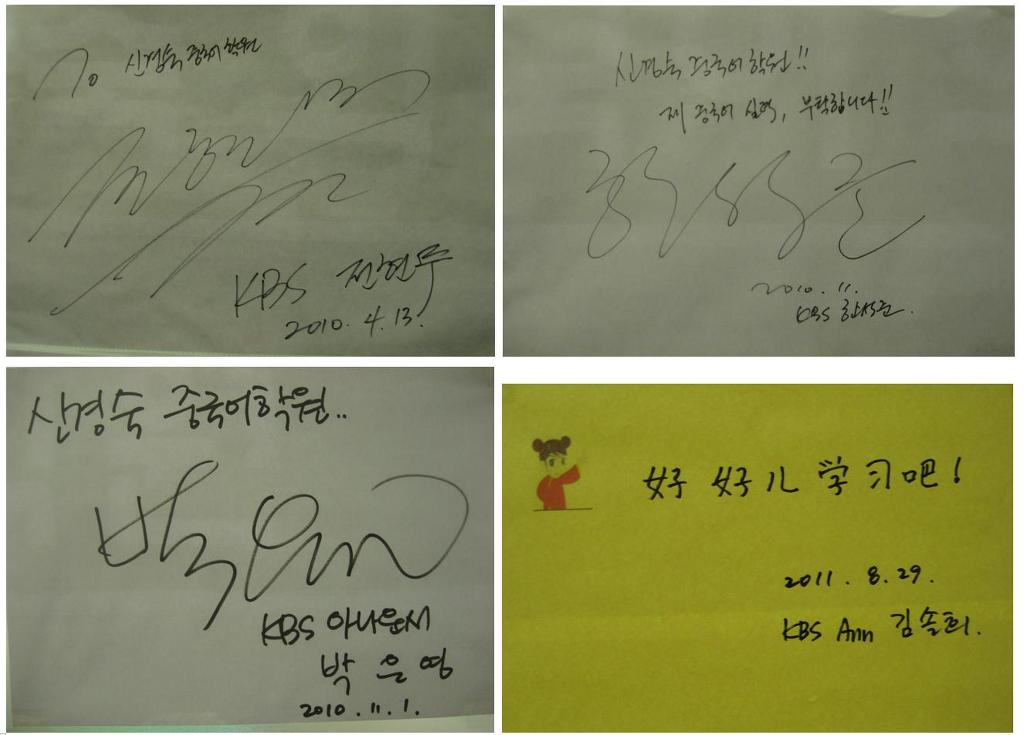 To 신경숙 중국어학원
KBS 전현무
2010. 4. 13.
신경숙 중국어학원!!
제 중국어 실력, 부탁합니다!!
2010. 11.
KBS 한석준.
신경숙 중국어학원..
박은영
KBS 아나운서
박 은 영
2010. 11. 1.
好好儿学习吧!
2011. 8. 29.
KBS Ann 김솔희.